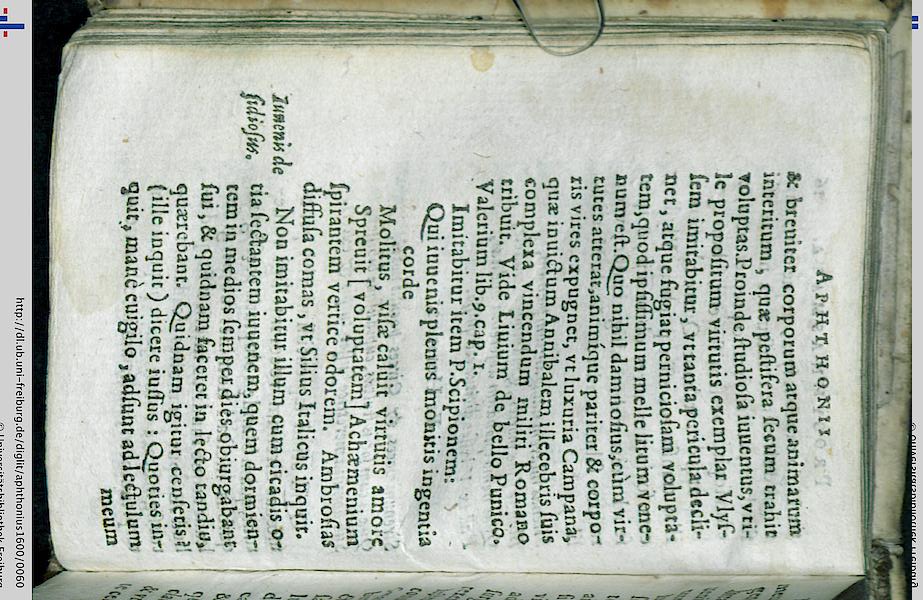 APHTHONII
& breuiter corporum atque animarum
interitum, quæ pestifera secum trahit
voluptas. Proinde studiosa iuuentus, vti-
le propositum virtutis exemplar Vlys-
sem imitabitur, vt tanta pericula decli-
net, atque fugiat perniciosam volupta-
tem, quod ipsissimum melle litum vene-
num est. Quo nihil damnosius, cùm vir-
tutes atterat, animíque pariter & corpo-
ris vires expugnet, vt luxuria Campana,
quæ inuictum Annibalem illecebris suis
complexa vincendum militi Romano
tribuit. Vide Liuium de bello Punico.
Valerium lib. 9. cap. 1.
Imitabitur item P. Scipionem:
Qui iuuenis plenus monitis ingentia
corde
Molitus, visa caluit virtutis amore
Spreuit [voluptatem] Achæmenium
spirantem vertice odorem. Ambrosias
diffusa comas, vt Silius Italicus inquit.
Non imitabitur illum cum cicadis o-
Iuuenis de
sidiosus.
tia sectantem iuuenem, quem dormien-
tem in medios semper dies obiurgabant
sui, & quidnam faceret in lecto tandiu,
quærebant. Quidnam igitur censetis?
(ille inquit) dicere iussus: Quoties in-
quit, manè euigilo, adsunt ad lectulum
meum
http://dl.ub.uni-freiburg.de/diglit/aphthonius1600/0060
© Universitätsbibliothek Freiburg